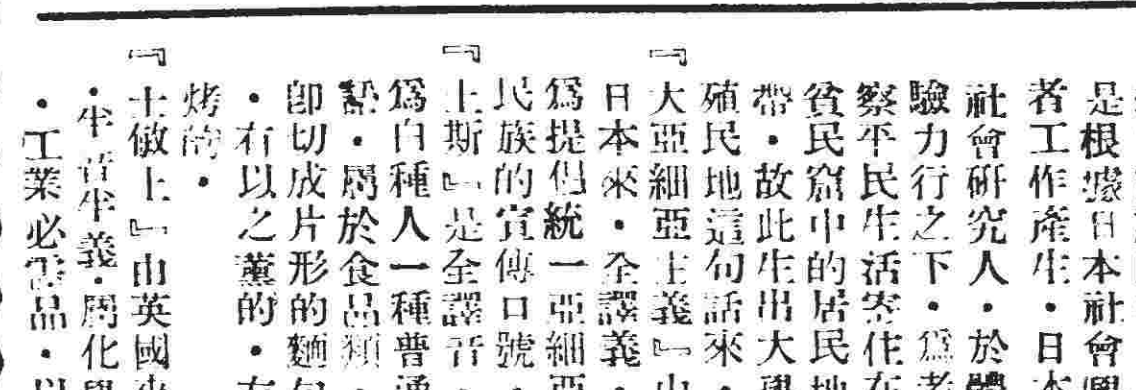 是根據日本社會興
者工作產生・日本
社會研究人・於體
驗力行之下・為考
察平民生活寄住在
貧民窟中的居民地
帶・故此生出大
殖民地這句話來・
『大亞細亞主義』由
日本來・全譯義・
為提倡統一亞細亞
民族的宣傳口號・
『土斯』是全譯音・
為白種人一種普通
語・屬於食品類・
卽切成片形的麵包
・有以之薰的・有
烤的・
『士敏土』由英國來
・半音半義・屬化學
・工業必需品・以